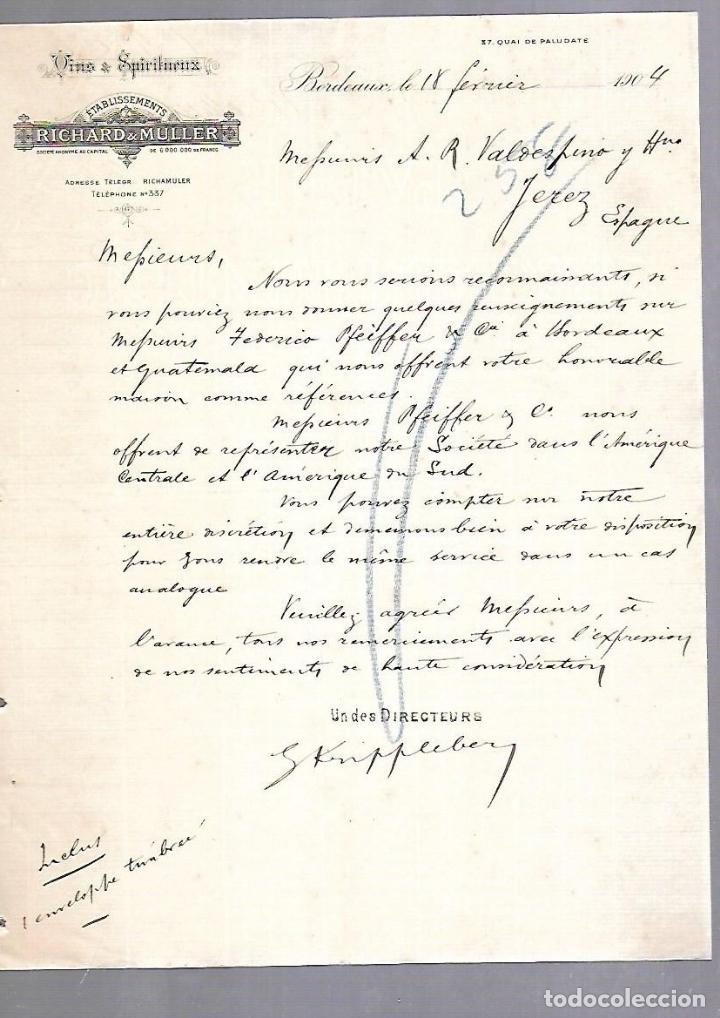 37. QUAI DE PALUDATE
Vins & Spiritueux
ÉTABLISSEMENTS
RICHARD & MULLER
SOCIÉTÉ ANONYME AU CAPITAL DE 6 000 000 DE FRANCS
ADRESSE TÉLÉGR. RICHAMULER
TÉLÉPHONE Nº 337
Bordeaux, le 18 février 1904
Messieurs A. R. Valdespino y Hno
Jerez
Espagne
Messieurs,
Nous vous serions reconnaissants, si
vous pouviez nous donner quelques renseignements sur
Messieurs Federico Pfeiffer & Cia à Bordeaux
et Guatemala qui nous offrent votre honorable
maison comme références.
Messieurs Pfeiffer & Co. nous
offrent de représenter notre Société dans l'Amérique
Centrale et l'Amérique du Sud.
Vous pouvez compter sur notre
entière discrétion et demeurons bien à votre disposition
pour vous rendre le même service dans un cas
analogue
Veuillez agréer Messieurs, à
l'avance, tous nos remerciements avec l'expression
de nos sentiments de haute considération
Un des DIRECTEURS
Inclus
1 enveloppe timbrée
todocoleccion